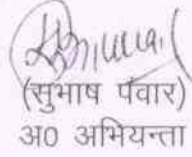 (सुभाष पंवार)
अ0 अभियन्ता